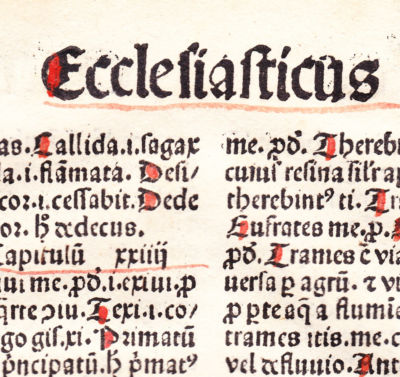 Ecclesiasticus
as. Callida.i.sagax
la.i.flāmata. Desi/
cor.i.cessabit. Dede
or. hͦ dedecus.
Capitulū xxiiij
uiui me.pͦd.i.exiui.p
q̄rre ɔiu. Texi.i.co/
go gis.xi. Primatū
pͥncipatū.hͦ pͥmatꝰ
me. pͦd. Therebi
cuiuſ resina sil'r ap
therebintꝰ ti. Tri
Eufrates me.p.
pͦd. Trames ē via
uersa ꝑ agrū. ⁊ vi
p ꝑte aq̄ a flumi
trames itis.me.c
vel de fluuio. Ant